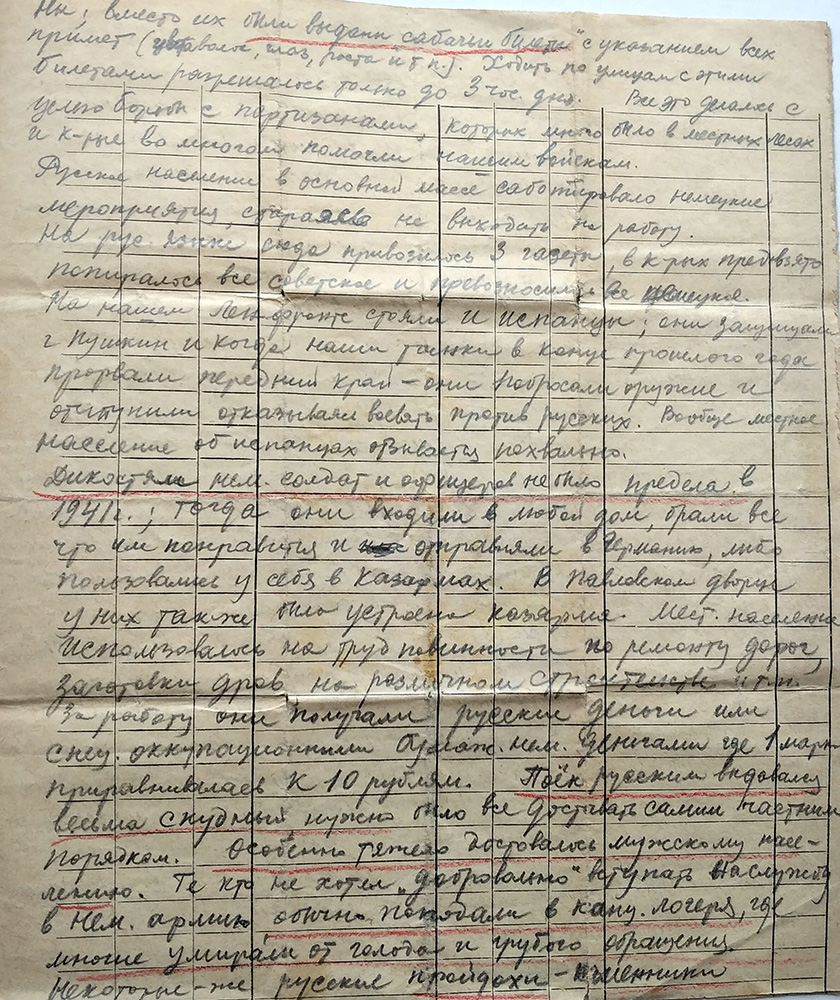 ны; вместо их были выданы „собачьи билеты“ с указанием всех
примет (цвета волос, глаз, роста и т.п.). Ходить по улицам с этими
билетами разрешалось только до 3 час. дня. Все это делалось с
целью борьбы с партизанами, которых много было в местных лесах
и к-рые во многом помогли нашим войскам.
Русское население в основной массе саботировало немецкие
мероприятия, стараясь не выходить на работу.
На рус. языке сюда привозилось 3 газеты, в к-рых предвзято
попиралось все советское и превозносилось все немецкое.
На нашем Ленфронте стояли и испанцы; они защищали
г Пушкин и когда наши танки в конце прошлого года
прорвали передний край – они побросали оружие и
отступили отказываясь воевать против русских. Вообще местное
население об испанцах отзывается похвально.
Дикостям нем. солдат и офицеров не было предела в
1941 г.; тогда они входили в любой дом, брали все
что им понравится и отправляли в Германию, либо
пользовались у себя в казармах. В Павловском дворце
у них также была устроена казарма. Мест. население
использовалось на труд повинности по ремонту дорог,
заготовки дров, на различном строительстве и т.п.
За работу они получали русские деньги или
спец. оккупационными бумаж. нем. деньгами где 1 марка
приравнивалась к 10 рублям. Паёк русским выдавался
весьма скудный, нужно было все доставать самим частным
порядком. Особенно тяжело доставалось мужскому насе-
лению. Те кто не хотел „добровольно“ вступать на службу
в нем. армию обычно попадали в конц. лагеря, где
многие умирали от голода и грубого обращения.
Некоторые-же русские пройдохи – изменники